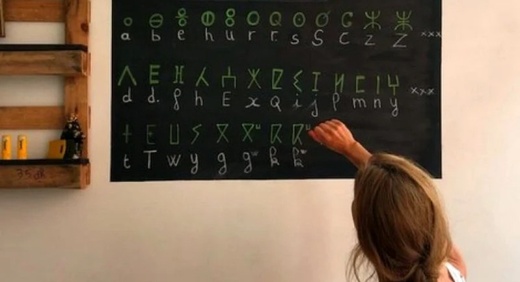 ⴰ ⴱ ⴻ ⵀ ⵓ ⵔ ⵕ ⵙ ⵚ ⵛ ⵣ ⵥ
a b e h u r r. s S C z Z xxx
ⴷ ⴹ ⴼ ⵃ ⵄ ⵅ ⵇ ⵉ ⵊ ⵍ ⵎ ⵏ ⵖ
d d. f h E x Q i j l m n y xxx
ⵜ ⵟ ⵡ ⵢ ⴳ ⴳⵯ ⴽ ⴽⵯ
t T w y g gʷ k kʷ